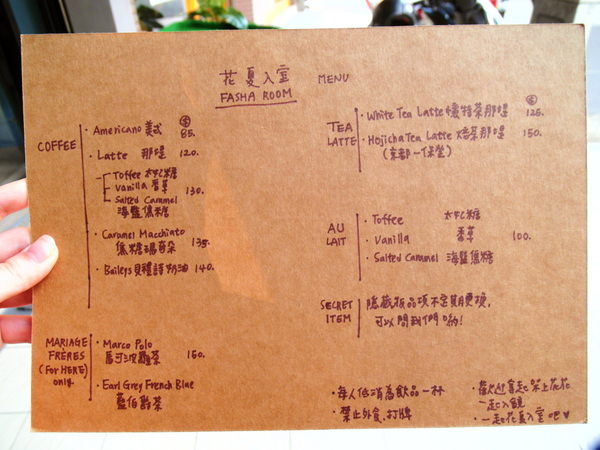 花夏入室 MENU
FASHA ROOM
COFFEE
· Americano 美式 85.
· Latte 那堤 120.
Toffee 太妃糖
Vanilla 香草 130.
Salted Caramel
海鹽焦糖
· Caramel Macchiato
焦糖瑪奇朵 135.
· Baileys 貝禮詩奶油 140.
MARIAGE
FRÈRES
(For HERE)
only.
· Marco Polo
馬可波羅茶 150.
· Earl Grey French Blue
藍伯爵茶
TEA
LATTE
· White Tea Latte 懷特茶那堤 125.
· Hojicha Tea Latte 焙茶那堤 150.
(京都一保堂)
AU
LAIT
· Toffee 太妃糖
· Vanilla 香草 100.
· Salted Caramel 海鹽焦糖
SECRET
ITEM
隱藏版品項不定期更換,
可以問我們喲!
· 每人低消為飲品一杯
· 禁止外食、打牌
· 歡迎拿起架上花花
一起入鏡
· 一起花夏入室吧♥